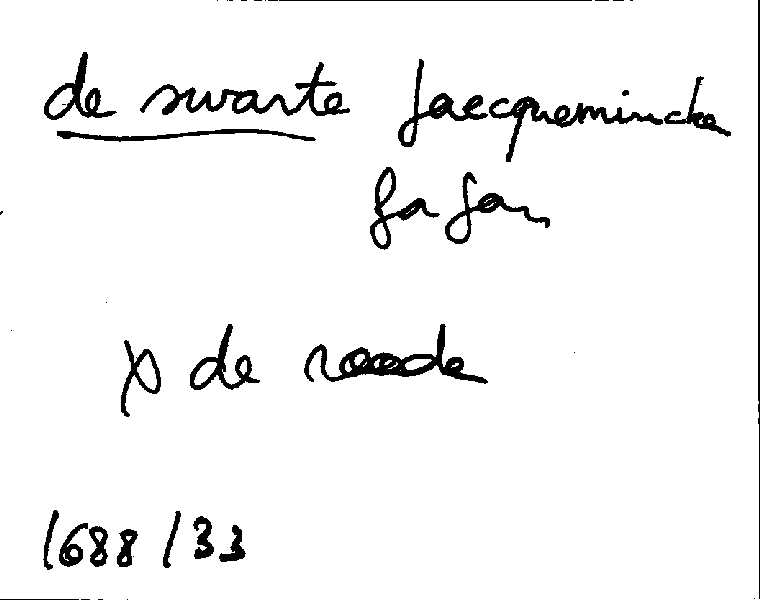 de swarte Jaecquemincke
fa Jan
x de roode
1688 / 33